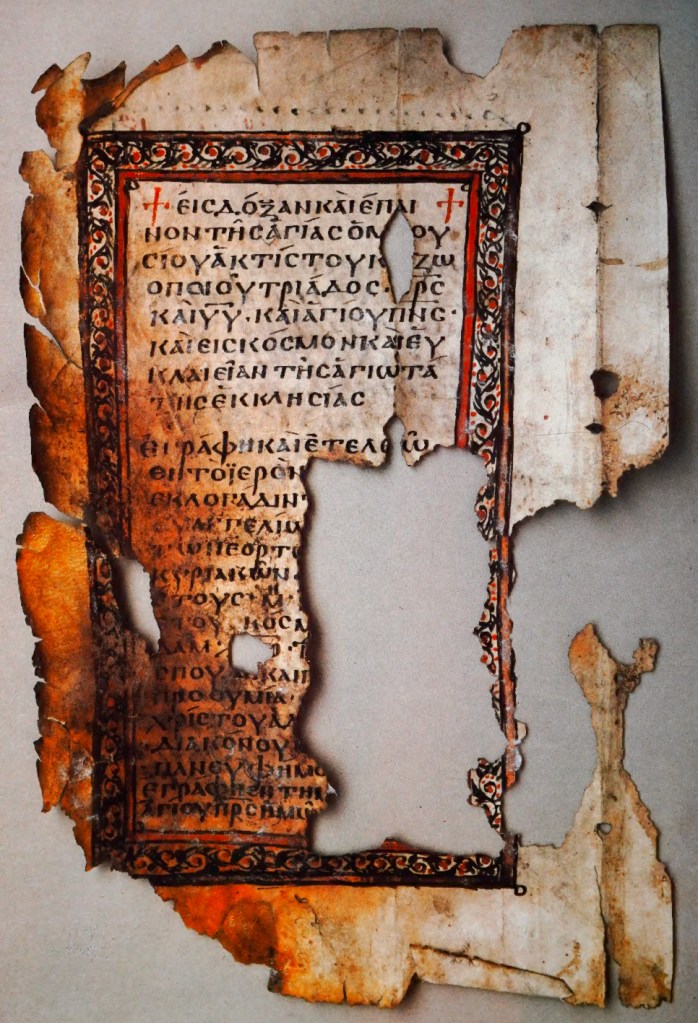 ☩ ἐις δόξαν κ̀αι ἐπαι ☩
νον τῆς ἁγίας ὁμοου
σίου ἀκτίστου κ ζω
οποιοῦ τριάδος · π̅ρ̅ς
κ̀αι υ̅υ̅ · κ̀αι ἁγίου π̅ν̅ς ·
κ̀αι εις κόσμον κ̀αι ἐυ
κλαιείαν τῆς ἁγιωτά
της ἐκκλησίας
ἐγράφη κ̀αι ἐτελειώ
θη το ϊερὸν
εκλογάδιν
ευαγγελίω
των εορτω
κυριακῶν
ετους · Μ
ετου κοσμ
δαμ
σπουδ καιπ
προθυμία
χρίστου
διακόνου
πανευφημο
εγράφη εν τη
ἁγίου π̅ρ̅ς ημῶ